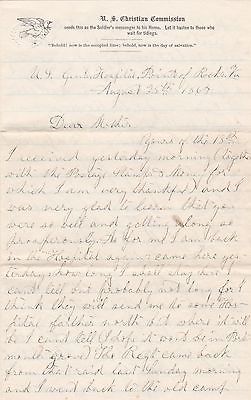 U. S. Christian Commission
sends this as the Soldier's messenger to his Home. Let it hasten to those who wait for tidings.
"Behold! now is the accepted time; behold, now is the day of salvation."
U.S. Genl. Hospital, Point of Rocks, Va
August 25th 186
Dear Mother
Yours of the 18th
I received yesterday morning (together
with the Postage Stamps & Money for
which I am very thankful) and I
was very glad to learn that you
were so well and getting along so
prosperously. As for me I am back
in the Hospital again, came here yes-
terday how long I shall stay here I
can't tell but probably not long for I
think they will send me to some Hos-
pital farther north but where it will
be I cant tell I hope it wont be in
The Regt came back
from that raid last Sunday morning
and I went back to the old camp